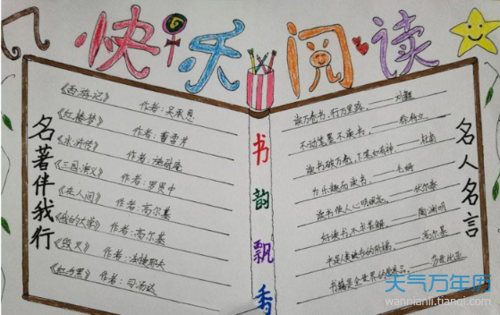 快乐阅读
名著伴我行
《西游记》 作者：吴承恩
《红楼梦》 作者：曹雪芹
《水浒传》 作者：施耐庵
《三国演义》 作者：罗贯中
《在人间》 作者：高尔基
《我的大学》 作者：高尔基
《毁灭》 作者：法捷耶夫
作者：
书韵飘香
读万卷书，行万里路。——刘彝
不动笔墨不读书。——徐特立
读书破万卷，下笔如有神。——杜甫
——毛姆
读书使人心明眼亮。——伏尔泰
好读书，不求甚解。——陶渊明
书是人类进步的阶梯。——高尔基
名人名言
天气万年历
wannianli.tianqi.com